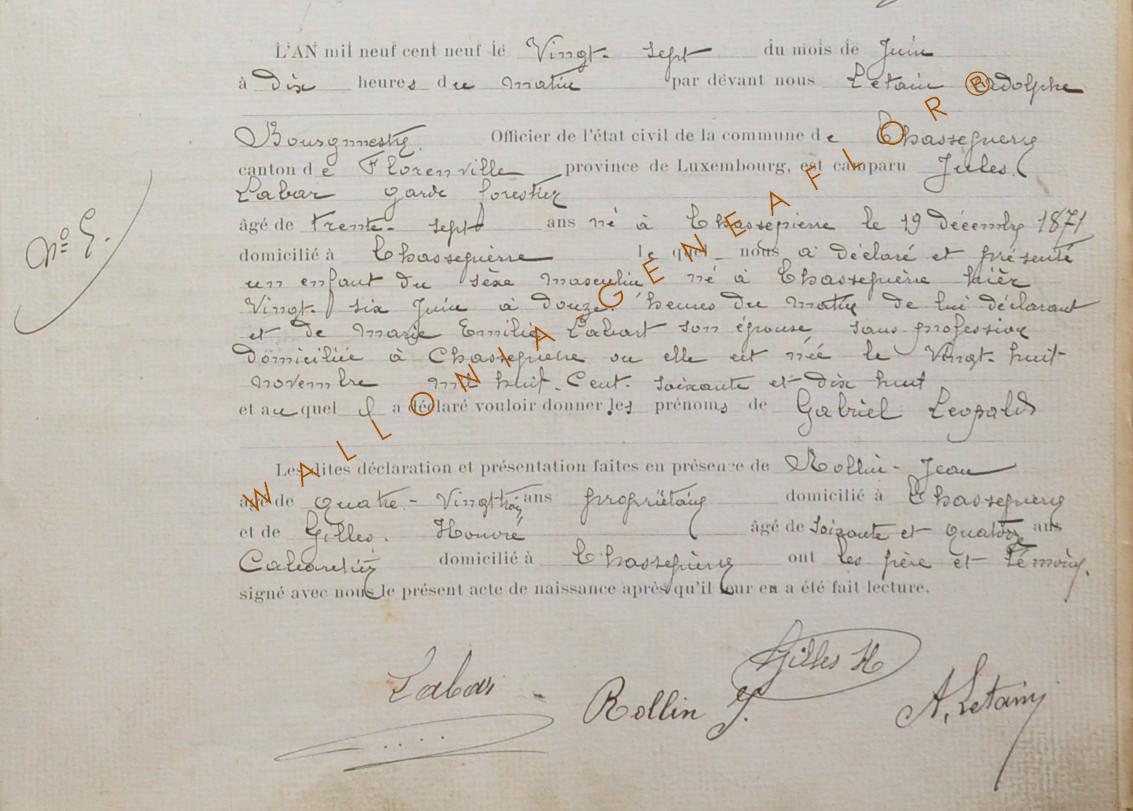 L'AN mil neuf cent neuf le Vingt-sept du mois de Juin
à dix heures du matin par devant nous Létain Adolphe
Bourgmestre Officier de l'état civil de la commune de Chassepierre
canton de Florenville province de Luxembourg, est comparu Jules
Labar garde forestier
âgé de trente-sept ans né à Chassepierre le 19 décembre 1871
domicilié à Chassepierre lequel nous a déclaré et présenté
un enfant du sèxe masculin né à Chassepierre hièr
Vingt-six Juin à douze heures du matin de lui déclarant
et de Marie Emilie Labart son épouse sans profession
domiciliée à Chassepierre ou elle est née le Vingt-huit
novembre mil huit-Cent-soixante et dix huit
et auquel il a déclaré vouloir donner les prénoms de Gabriel Léopold
Les dites déclaration et présentation faites en présence de Rollin-Jean
âgé de quatre-Vingt ans propriétaire domicilié à Chassepierre
et de Gilles Honoré âgé de soizante et quatorze ans
Cabaretier domicilié à Chassepierre ont les père et témoins
signé avec nous le présent acte de naissance après qu'il leur en a été fait lecture.
Nº
Labar
Gilles H
Rollin J.
A. Letain
WALLONIA GENEAFLOR ®